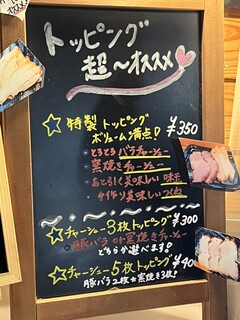 トッピング
超〜オススメ
☆特製トッピング
ボリューム満点! ¥350
・とろとろバラチャーシュー
・窯焼きチャーシュー
・あと引く美味しい味玉
・手作り美味しいつくね
☆チャーシュー3枚トッピング ¥300
豚バラ or 窯焼きチャーシュー
どちらか選べます!
☆チャーシュー5枚トッピング ¥40
豚バラ2枚+窯焼き3枚!